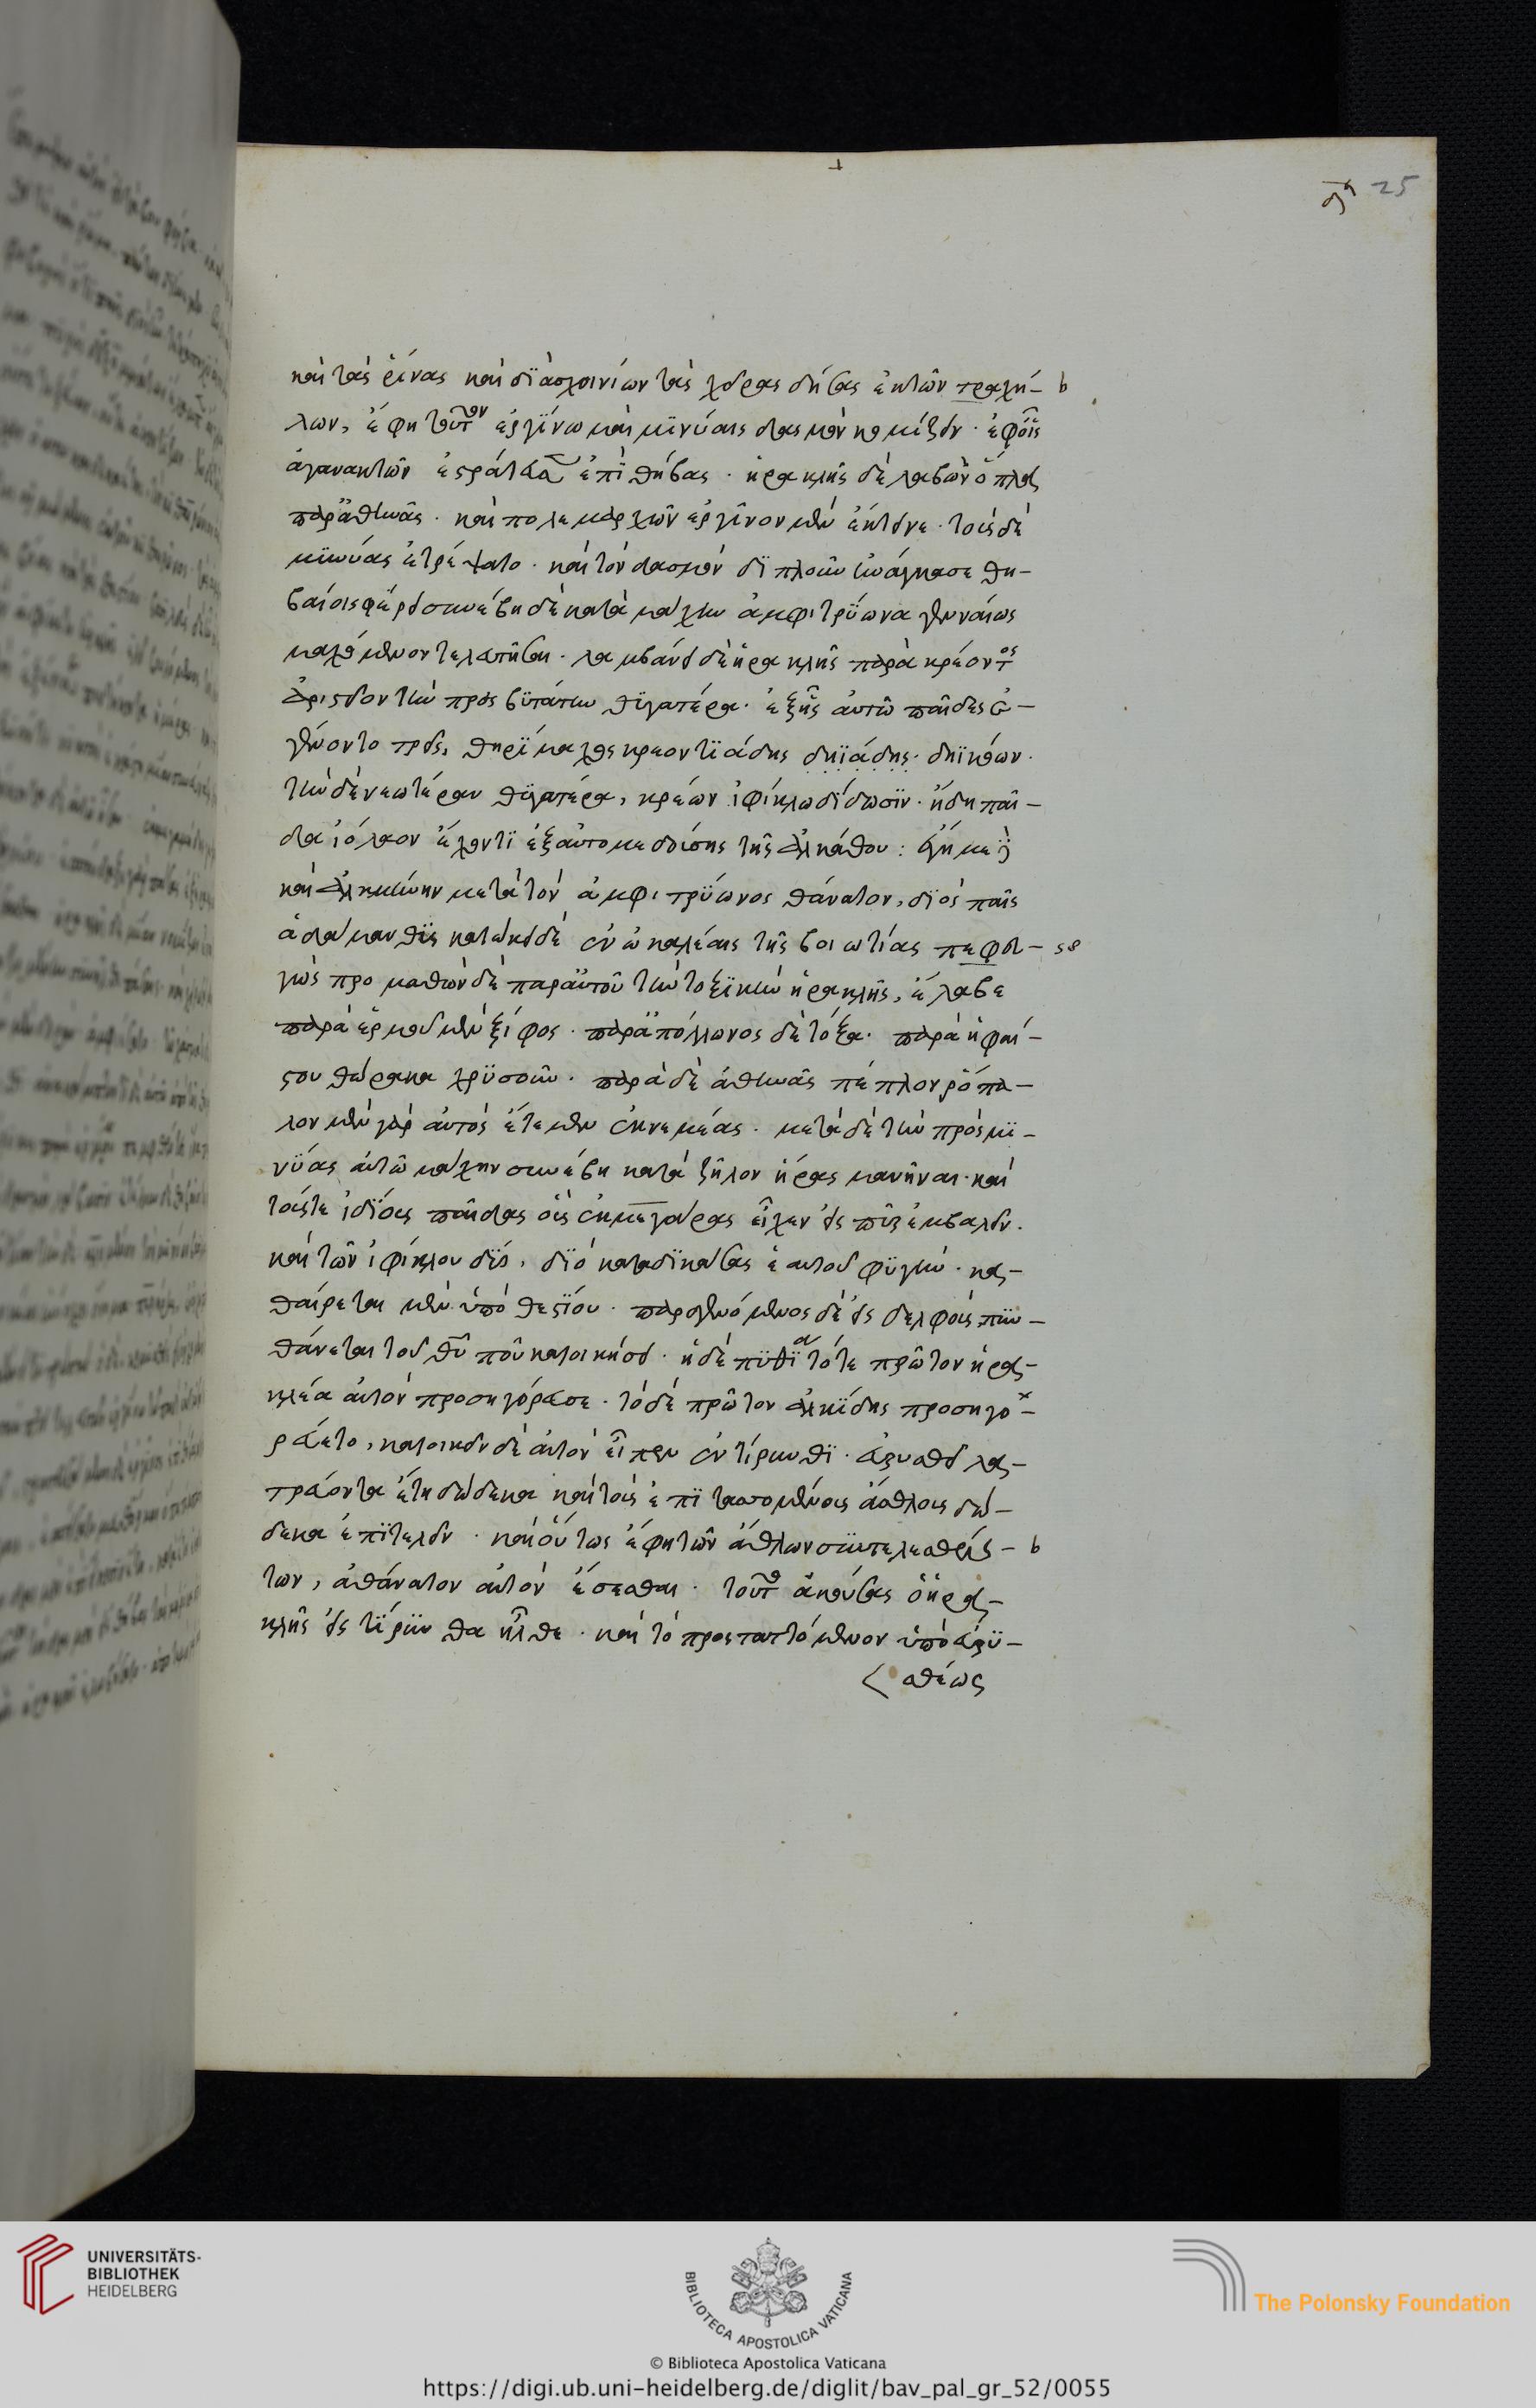 25
καὶ τὰς ῥίνας καὶ δϊασχοινίων τὰς χεῖρας δήσας ἐκτῶν τραχή– b
λων, ἔφη τοῦτον ἐργίνω καὶ μϊνύαις δασμὸν κομίζειν · ἐφοἷς
ἀγανακτῶν ἐστράτευσεν ἐπὶ θήβας · ἡρακλῆς δὲ λαβὼν ὅπλα
παρἀθηνᾶς · καὶ πολεμαρχῶν ἐργῖνον μὲν ἔκτεινε · τοὺς δὲ
μϊνύας ἐτρέψατο · καὶ τὸν δασμὸν δϊπλοῦν ἠνάγκασε θη–
βαίοις φέρειν συνέβη δὲ κατὰ μάχην ἀμφιτρΰωνα γενναίως
μαχόμενον τελευτῆσαι · λαμβάνει δὲ ἡρακλῆς παρὰ κρέοντος
ἀριστεῖον τὴν πρεσβϋτάτην θϋγατέρα · ἐξῆς αὐτῶ παῖδες ἐ–
γένοντο τρεῖς, θηρϊμαχος κρεοντϊάδης δηϊάδης · δηϊκόων ·
τὴν δὲ νεωτέραν θϋγατέρα, κρέων ἰφίκλω δίδωσϊν · ἤδη παῖ–
δα ἰόλαον ἔχοντϊ ἐξαὐτομεδούσης τῆς ἀλκάθου : ἔγημε δὲ
καὶ ἀλκμήνην μετὰ τὸν ἀμφιτρΰωνος θάνατον, διὸς παῖς
ἀδαμανθϊς κατώκει δὲ ἐν ὠκαλέαις τῆς βοιωτίας πεφευ– 58
γὼς προμαθὼν δὲ παρἀυτοῦ τὴν τοξϊκὴν ἡρακλῆς, ἔλαβε
παρὰ ἑρμοῦ μὲν ξίφος · παρἀπόλλωνος δὲ τόξα · παρὰ ἡφαί–
στου θώρακα χρϋσοῦν · παρὰ δὲ ἀθηνᾶς πέπλον ῥόπα–
λον μὲν γὰρ αὐτὸς ἔτεμεν ἐκ νεμέας · μετὰ δὲ τὴν πρὸς μϊ–
νΰας αὐτῶ μάχην συνέβη κατὰ ζῆλον ἥρας μανῆναι · καὶ
τούς τε ἰδΐους παῖδας οὓς ἐκ μεγάρας εἶχεν εἰς πῦρ ἐμβαλεῖν ·
καὶ τῶν ἰφίκλου δΰο, δϊὸ καταδϊκάσας ἑαυτοῦ φϋγὴν · κα–
θαίρεται μὲν ὑπὸ θεστίου · παραγενόμενος δὲ εἰς δελφοὺς, πϋν–
θάνεται τοῦ θεοῦ ποῦ κατοικήσει · ἡ δὲ πϋθία τότε πρῶτον ἡρα–
κλέα αὐτὸν προσηγόρευσε · τὸ δὲ πρῶτον ἀλκίδης προσηγο–
ρεύετο, κατοικεῖν δὲ αὐτὸν εἶπεν ἐν τίρυνθϊ · εὐρυσθεῖ λα–
τρεύοντα ἔτη δώδεκα καὶ τοὺς ἐπϊτασσομένους ἄθλους δώ–
δεκα ἐπϊτελεῖν · καὶ οὕτως ἔφη τῶν ἄθλων συντελεσθέν– b
των, ἀθάνατον αὐτὸν ἔσεσθαι · τοῦτο ἀκούσας ὁ ἡρα–
κλῆς εἰς τΐρυνθα ἦλθε · καὶ τὸ προσταττόμενον ὑπὸ εὐρϋ–
σθέως
UNIVERSITÄTS-
BIBLIOTHEK
HEIDELBERG
BIBLIOTECA APOSTOLICA VATICANA
The Polonsky Foundation
© Biblioteca Apostolica Vaticana
https://digi.ub.uni-heidelberg.de/diglit/bav_pal_gr_52/0055